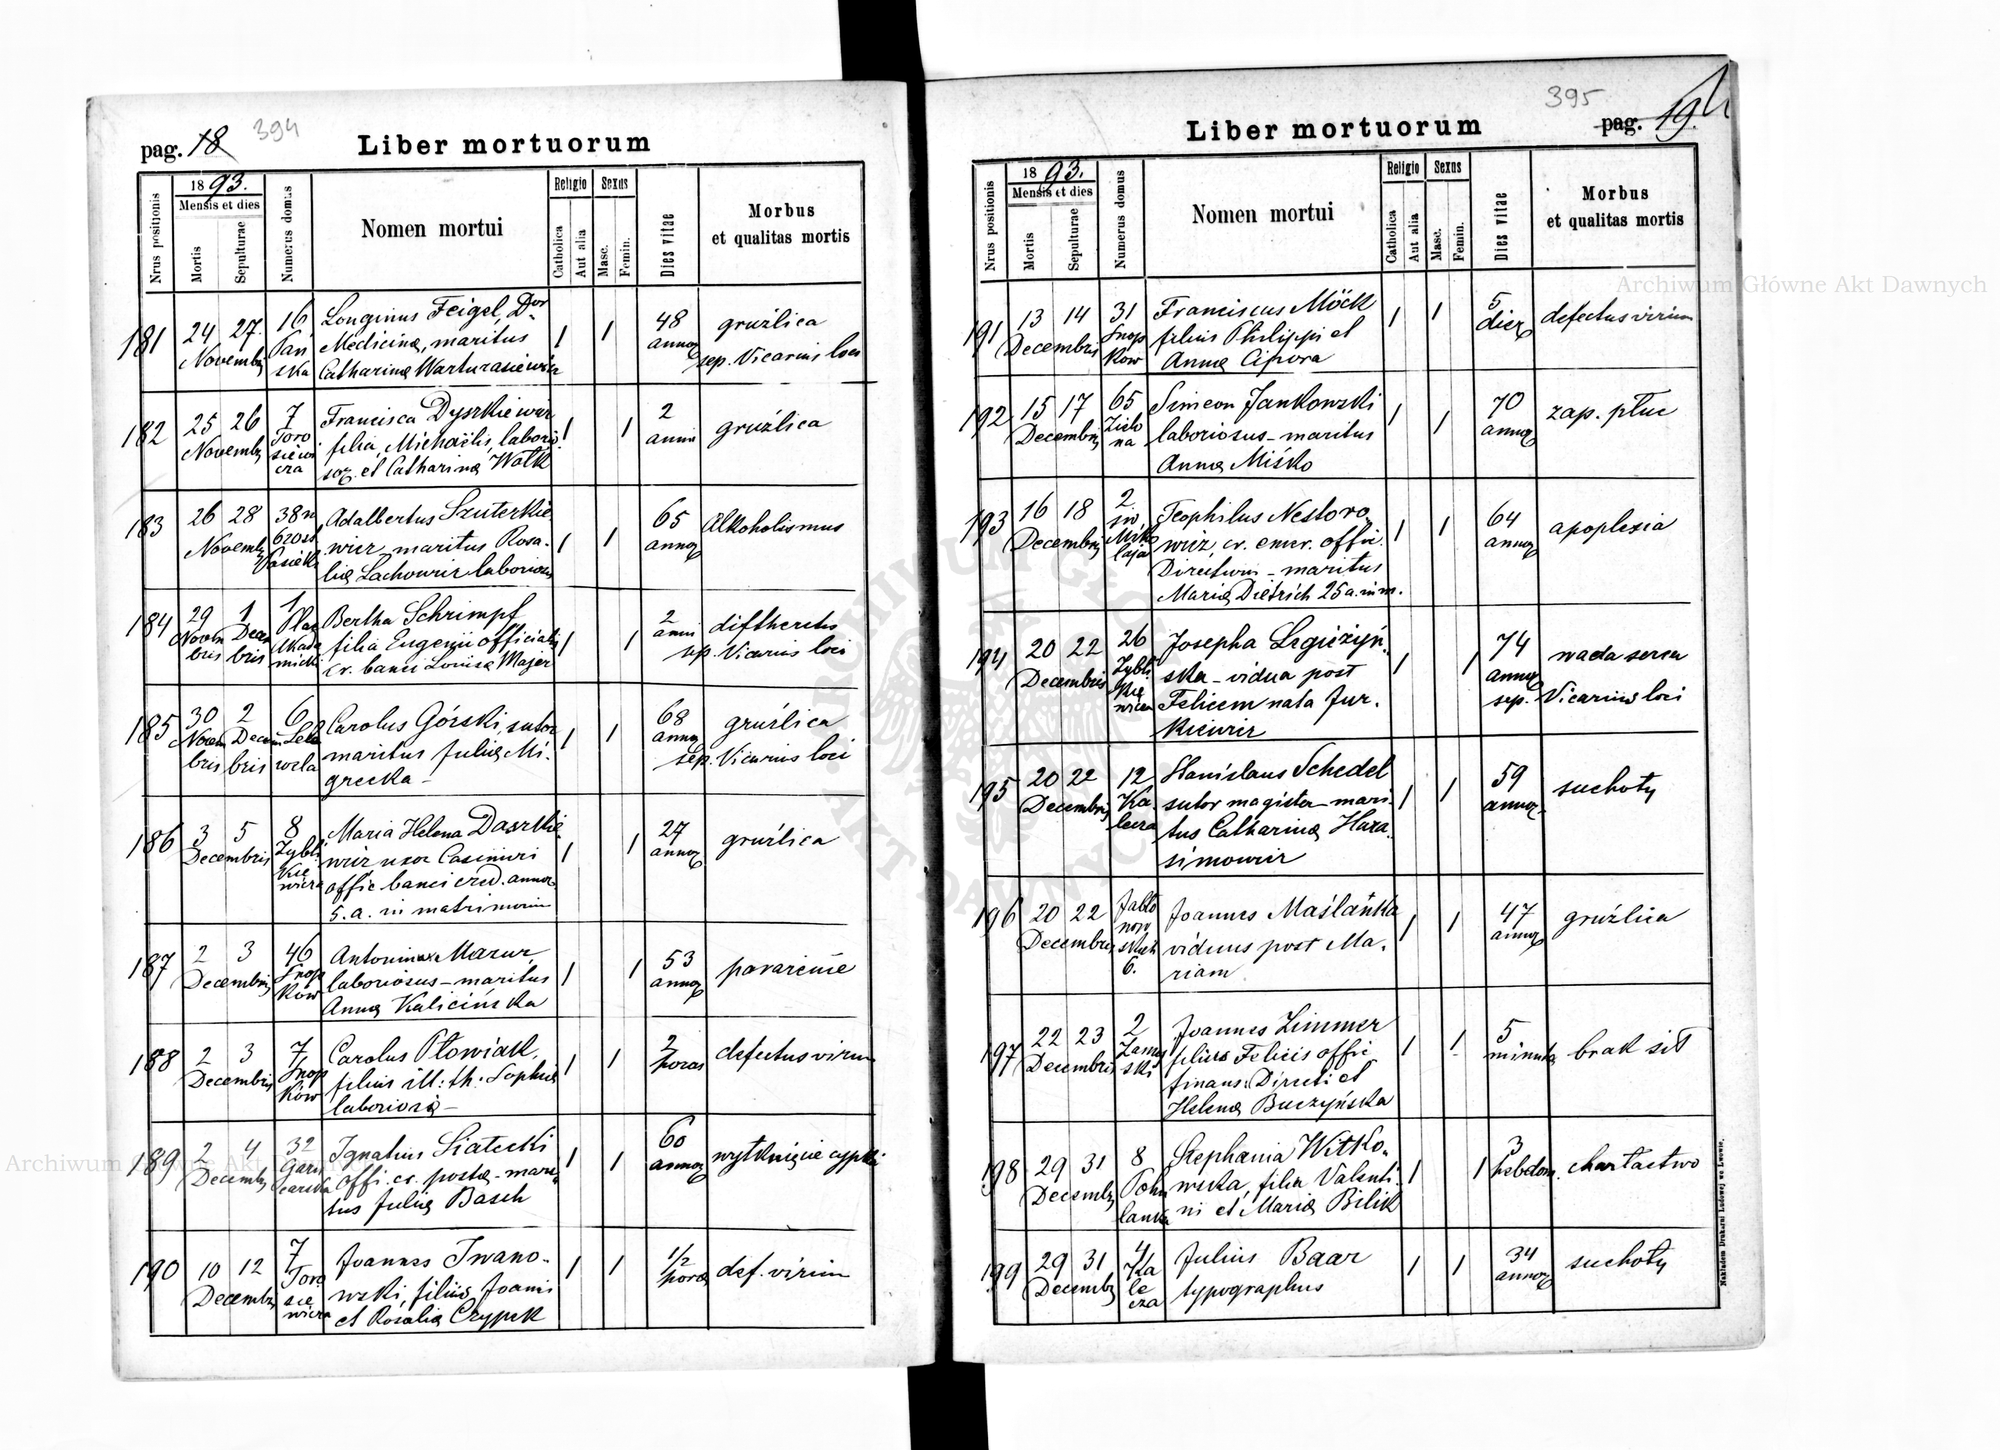 pag. 18 394
Liber mortuorum
Nrus positionis
1893.
Mensis et dies
Mortis
Sepulturae
Numerus domus
Nomen mortui
Religio
Catholica
Aut alia
Sexus
Masc.
Femin.
Dies vitae
Morbus
et qualitas mortis
181 24 27 Novembr 16 Pań
ska
Longinus Feigel, Dor
Medicinæ, maritus
Catharinæ Warturasiewicz
1 1 48 annor
gruźlica
sep. Vicarius loci
182 25 26 Novembr 7 Toro
siewi
cza
Francisca Dyszkiewicz
filia Michaëlis, laborio
sor. et Catharinæ Wołk
1 1 2 anni
gruźlica
183 26 28 Novembr 38
Adalbertus Szuterkie
wicz, maritus Rosa-
liæ Lachowicz laboriosus
1 1 65 annor
Alkoholismus
184 29 Novem
bris 1 Decem
bris 1 Plac
Akade
micki
Bertha Schrimpf
filia Eugenii officialis
cr. banci Louisæ Majer
1 1 2 anni
diftheritis
sep. Vicarius loci
185 30 Novem
bris 2 Decem
bris 6 Lele
wela
Carolus Górski, sutor
maritus Juliæ Mi-
grecka –
1 1 68 annor
gruźlica
sep. Vicarius loci
186 3 5 Decembris 8 Zybli
kie
wicza
Maria Helena Daszkie
wicz uxor Casimiri
offic banci cred. annor
5. a. in matrimonio
1 1 27 annor
gruźlica
187 2 3 Decembris 46 Snop
ków
Antoninus Mazur,
laboriosus – maritus
Annæ Kalicińska
1 1 53 annor
porażenie
188 2 3 Decembris 7 Snop
ków
Carolus Płowiak,
filius ill: th. Sophiæ
laboriosæ –
1 1 2 horas
defectus virium
189 2 4 Decembr 32 Garn
carska
Ignatius Siatecki
offi. cr. postæ – mari
tus Juliæ Basch
1 1 60 annor
190 10 12 Decembr 7 Toro
sie
wicza
Joannes Iwano-
wski, filius Joanni
et Rosaliæ Czypek
1 1 1/2 horæ
def. virium
395
pag. 19.
Liber mortuorum
Nrus positionis
1893.
Mensis et dies
Mortis
Sepulturae
Numerus domus
Nomen mortui
Religio
Catholica
Aut alia
Sexus
Masc.
Femin.
Dies vitae
Morbus
et qualitas mortis
191 13 14 Decembris 31 Snop
ków
Franciscus Möck
filius Philippi et
Annæ Cipora
1 1 5 dier
defectus virium
192 15 17 Decembr 65 Zielo
na
Simeon Jankowski
laboriosus – maritus
Annæ Miśko
1 1 70 annor
zap. płuc
193 16 18 Decembris 2 św.
Miko
łaja
Teophilus Nestoro
wicz, cr. emer. offic.
Directivus – maritus
Mariæ Dietrich 25 a. in m.
1 1 64 annor
apoplexia
194 20 22 Decembris 26 Zybli
kie
wicza
Josepha Legieżyń-
ska – vidua post
Felicem nata Jur-
kiewicz
1 1 74 annor
wada serca
sep. Vicarius loci
195 20 22 Decembris 12 Ka
lecza
Stanislaus Schedel
sutor magister – mari-
tus Catharinæ Hara-
simowicz
1 1 59 annor
suchoty
196 20 22 Decembris Jabło
now
skich
6.
Joannes Maślanka
viduus post Ma-
riam
1 1 47 annor
gruźlica
197 22 23 Decembris 2 Zamoj
ski
Joannes Zimmer
filius Felicis offic
finans. Directi et
Helenæ Buczyńska
1 1 5 minuta
brak sił
198 29 31 Decembr 8 Pohu
lanka
Stephania Witko-
wska, filia Valenti-
ni et Mariæ Bilik
1 1 3 hebdom.
charłactwo
199 29 31 Decembr 4 Ka
le
cza
Julius Baar
typographus
1 1 34 annor
suchoty
Nakładem Drukarni Ludowej we Lwowie.
Archiwum Główne Akt Dawnych
Archiwum Główne Akt Dawnych